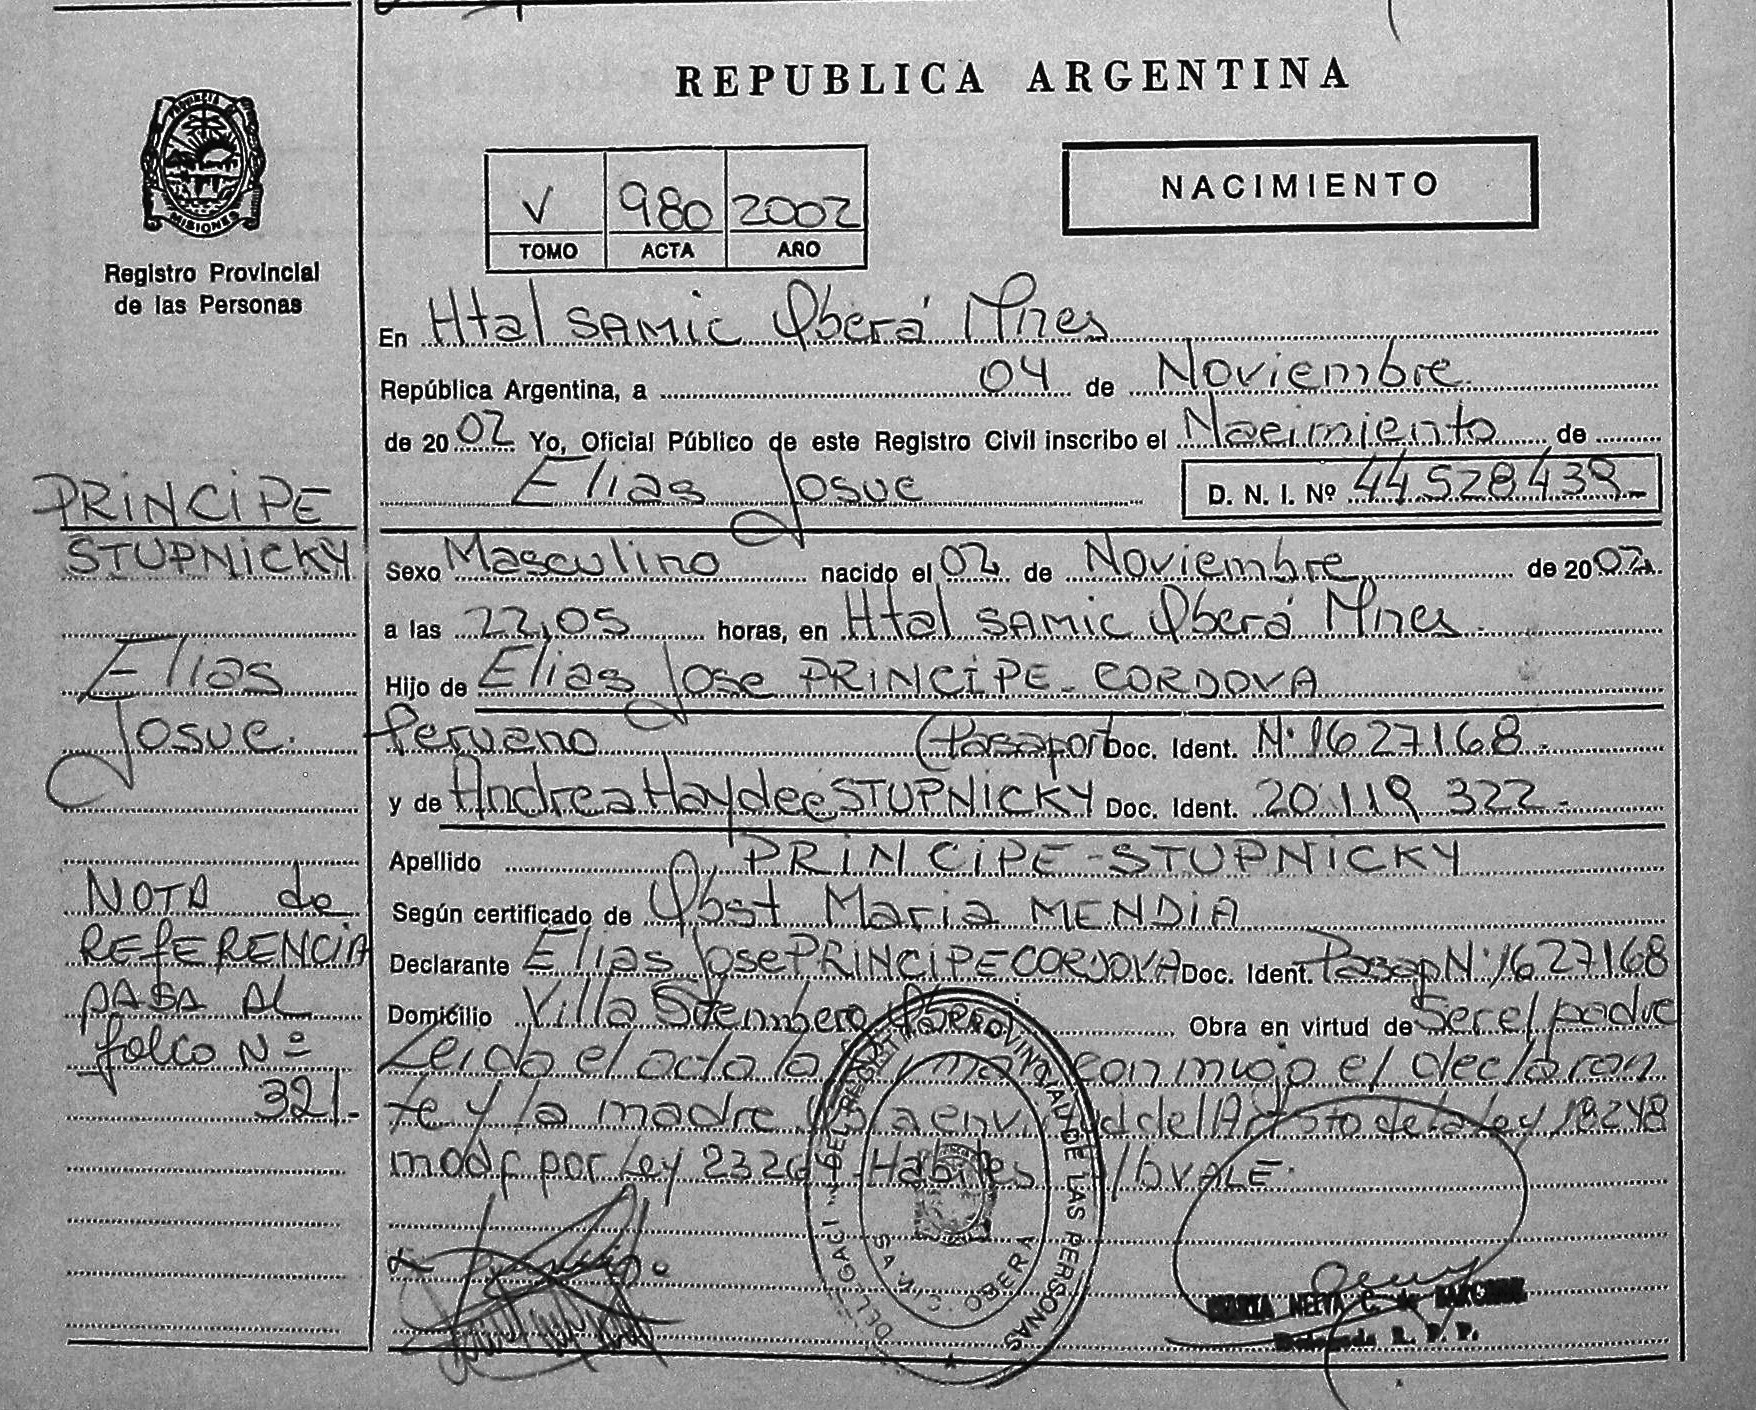 REPUBLICA ARGENTINA
MISIONES
Registro Provincial
de las Personas
V 980 2002
TOMO ACTA AÑO
NACIMIENTO
En Htal SAMIC Oberá Mnes
República Argentina, a 04 de Noviembre
de 2002 Yo, Oficial Público de este Registro Civil inscribo el Nacimiento de
Elias Josue D. N. I. Nº 44.528.439-
PRINCIPE
STUPNICKY
Elias
Josue.
Sexo Masculino nacido el 02 de Noviembre de 2002.
a las 22,05 horas, en Htal SAMIC Oberá Mnes.
Hijo de Elias Jose PRINCIPE - CORDOVA
Peruano (Pasaport Doc. Ident. Nº 1627168.-
y de Andrea Haydee STUPNICKY Doc. Ident. 20.119.322.-
Apellido PRINCIPE-STUPNICKY
Según certificado de Obst Maria MENDIA
Declarante Elias Jose PRINCIPE CORDOVA Doc. Ident. Pasap Nº 1627168
Domicilio Villa Stemberg Oberá Obra en virtud de Ser el padre
Leida el acta la firman conmigo el declaran
te y la madre en virtud del Art 5to de la Ley 18248
modf por Ley 23264 Habiles VALE.
NOTA de
REFERENCIA
PASA AL
folio Nº
321.-
REGISTRO PROVINCIAL DE LAS PERSONAS
S.A.M.I.C. OBERA
MARIA NEIVA C. de
Delegada R. P. P.